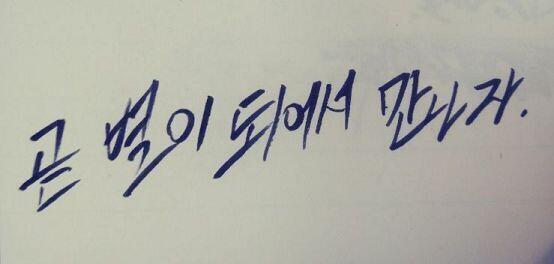 곧 별이 되어서 만나자.